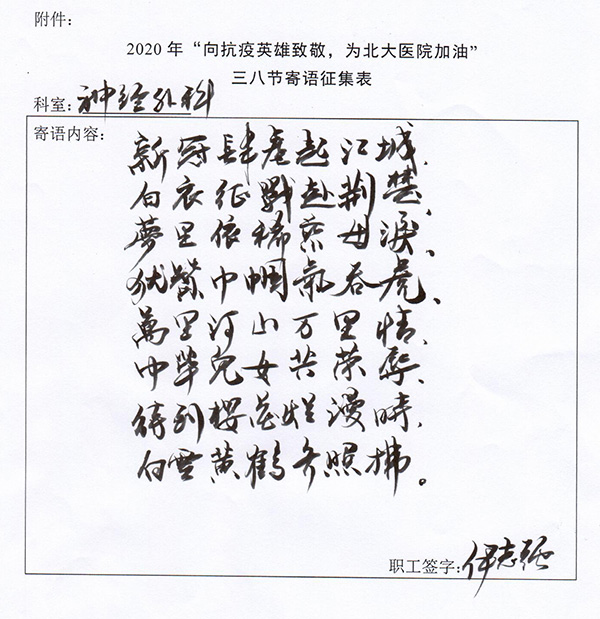 附件：
2020 年“向抗疫英雄致敬，为北大医院加油”
三八节寄语征集表
科室：神经外科
寄语内容：
新冠肆虐起江城，
白衣征戰赴荆楚、
夢里依稀慈母淚、
伏鷲巾帼氣吞虎、
萬里河山万里情，
中华兒女共荣辱、
待到櫻花烂漫時，
白雲黄鶴齐照拂。
职工签字：伊志强